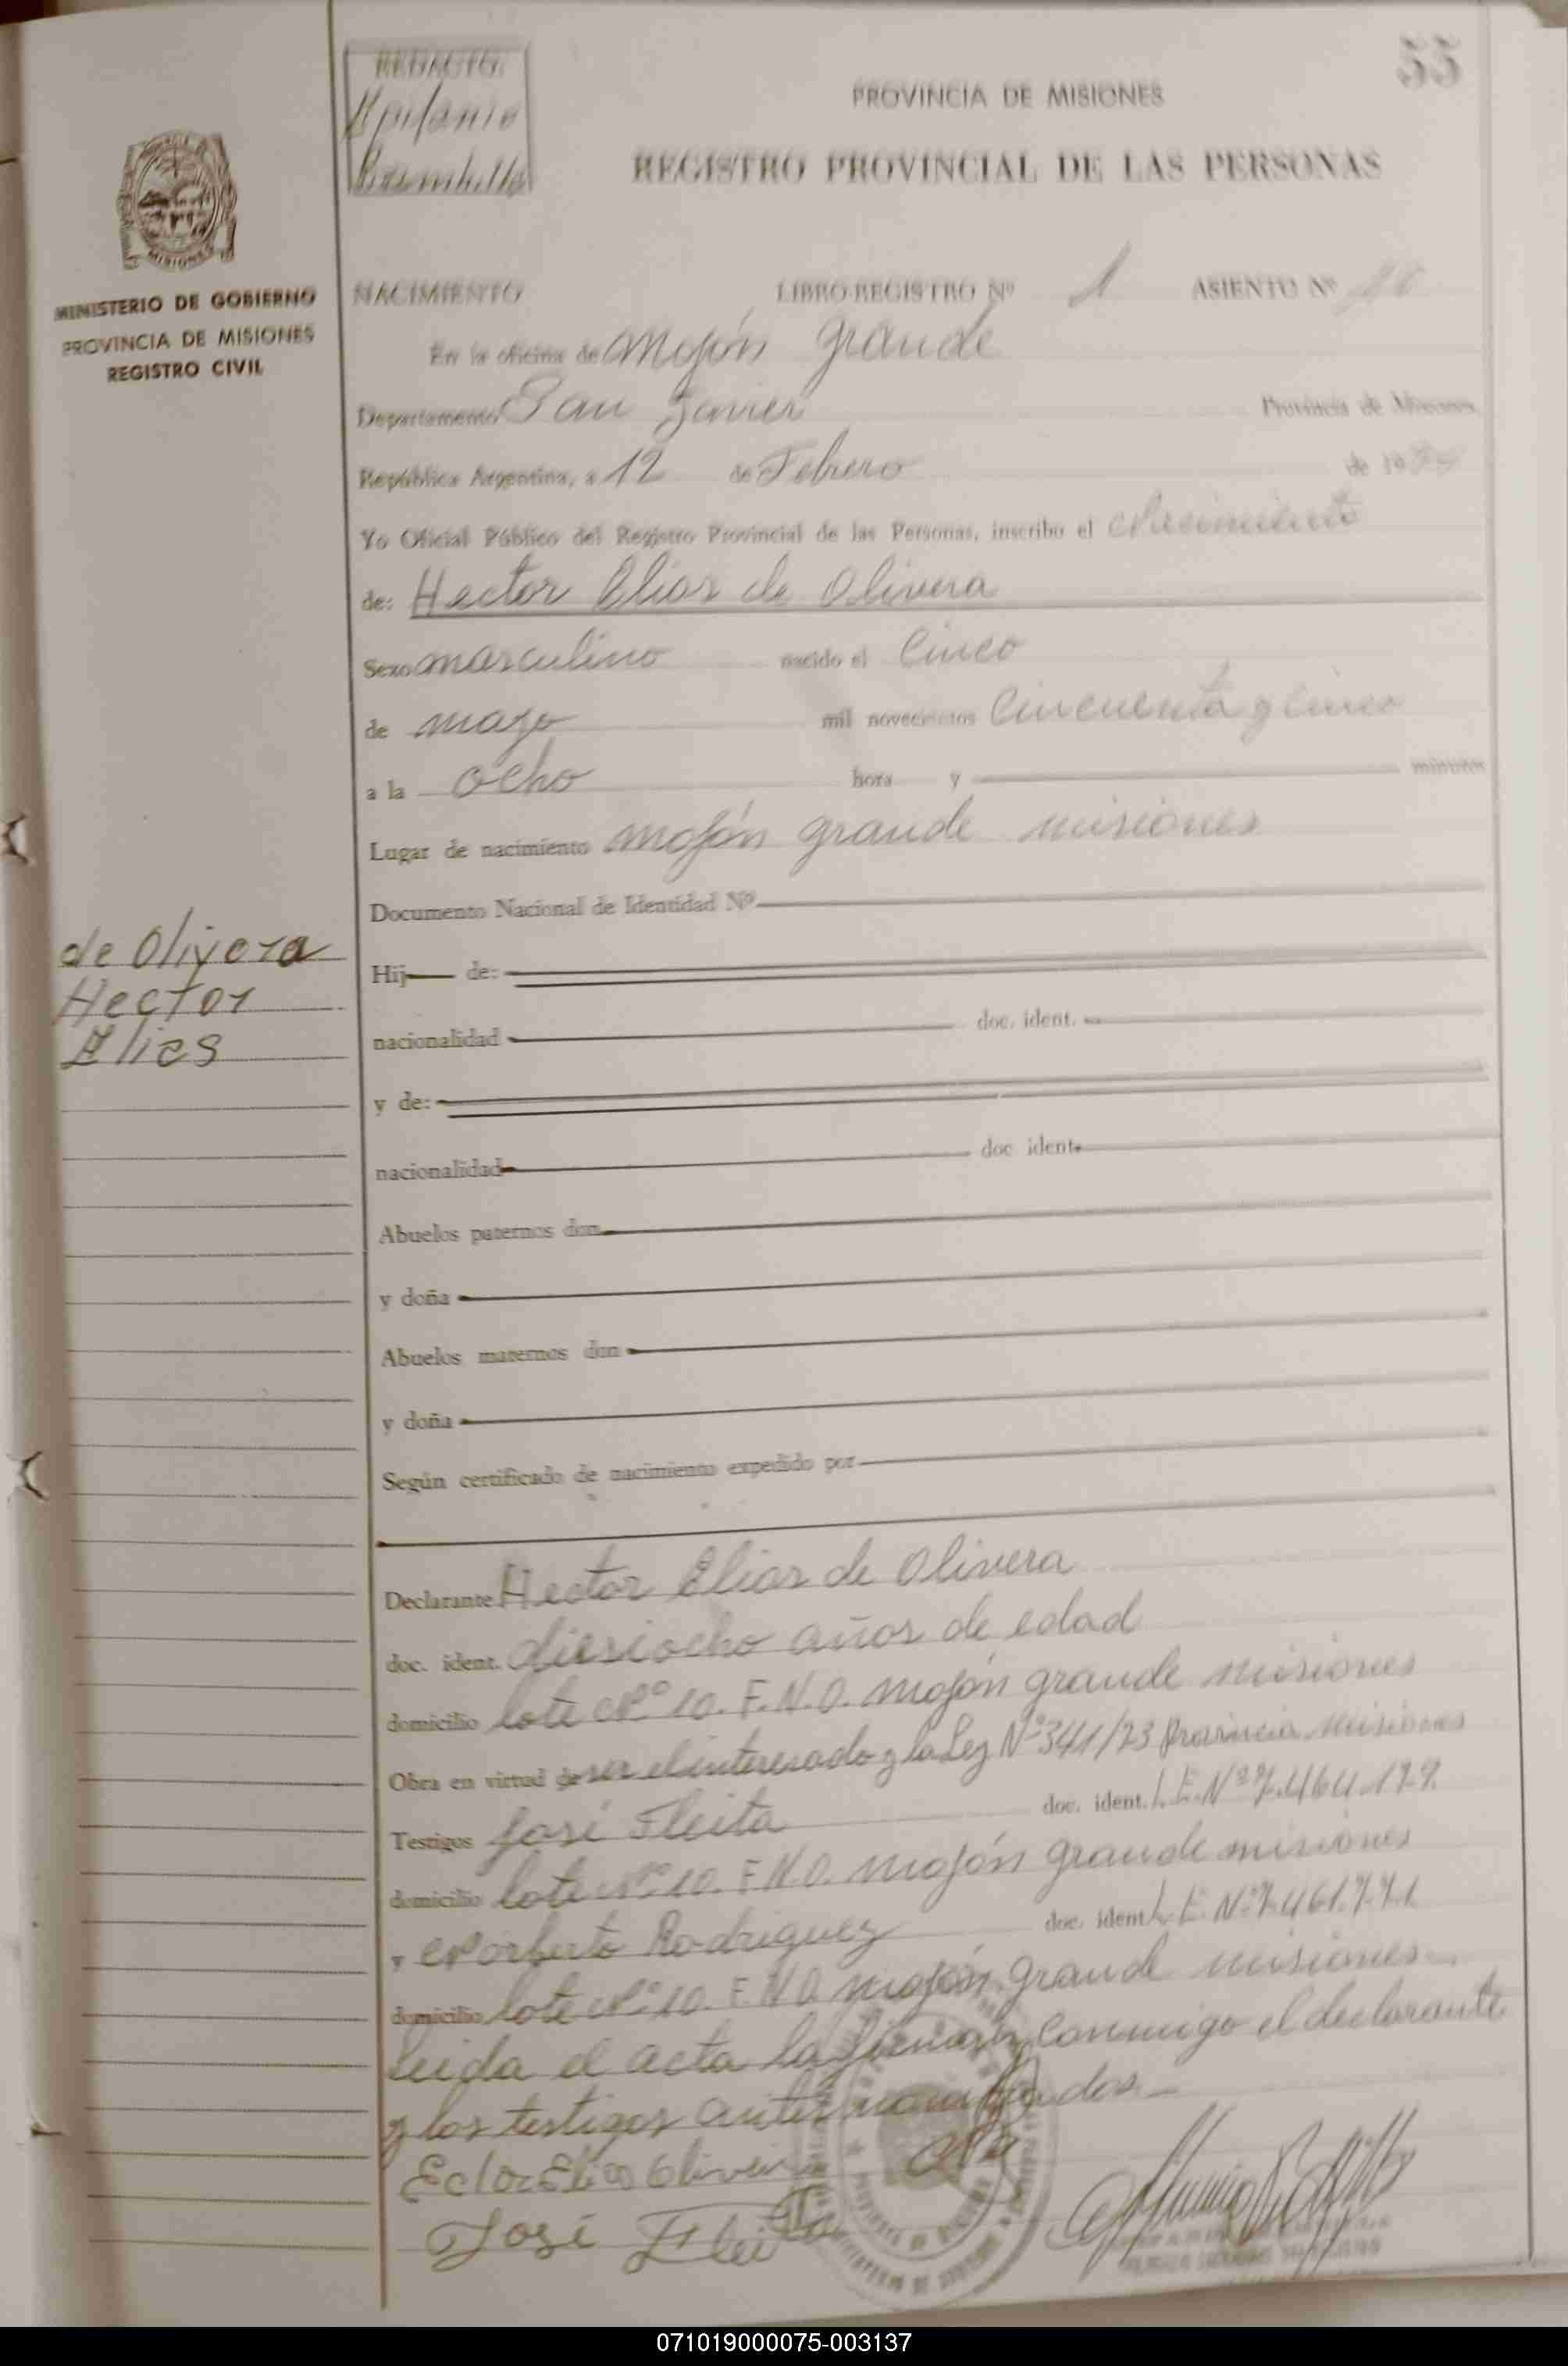 55
REDACTO:
Epifanio
PROVINCIA DE MISIONES
REGISTRO PROVINCIAL DE LAS PERSONAS
MISIONES
MINISTERIO DE GOBIERNO
PROVINCIA DE MISIONES
REGISTRO CIVIL
NACIMIENTO LIBRO REGISTRO Nº 1 ASIENTO Nº
En la oficina de Mojón grande
Departamento San Javier Provincia de Misiones
República Argentina, a 12 de Febrero de 19
Yo Oficial Público del Registro Provincial de las Personas, inscribo el Nacimiento
de: Hector Elias de Olivera
Sexo masculino nacido el Cinco
de mayo mil novecientos Cincuenta y Cinco
a la ocho hora y minutos
Lugar de nacimiento mojón grande misiones
Documento Nacional de Identidad Nº
Hij de:
nacionalidad doc. ident.
y de:
nacionalidad doc ident.
Abuelos paternos don
y doña
Abuelos maternos don
y doña
Según certificado de nacimiento expedido por
de Olivera
Hector
Elias
Declarante Hector Elias de Olivera
doc. ident. diesiocho años de edad
domicilio lote Nº 10. F.N.O. mojón grande misiones
Obra en virtud de ser el interesado y la Ley Nº 341/23 Provincia Misiones
Testigos José Fleita doc. ident. L.E. Nº 7.464.179
domicilio lote Nº 10. F.N.O. mojón grande misiones
y Norberto Rodriguez doc. ident L.E. Nº 7.461.771
domicilio lote Nº 10. F.N.O. mojón grande misiones
leida el acta la firman conmigo el declarante
y los testigos antes nombrados
Ector Elias Olivera
José Fleita
071019000075-003137